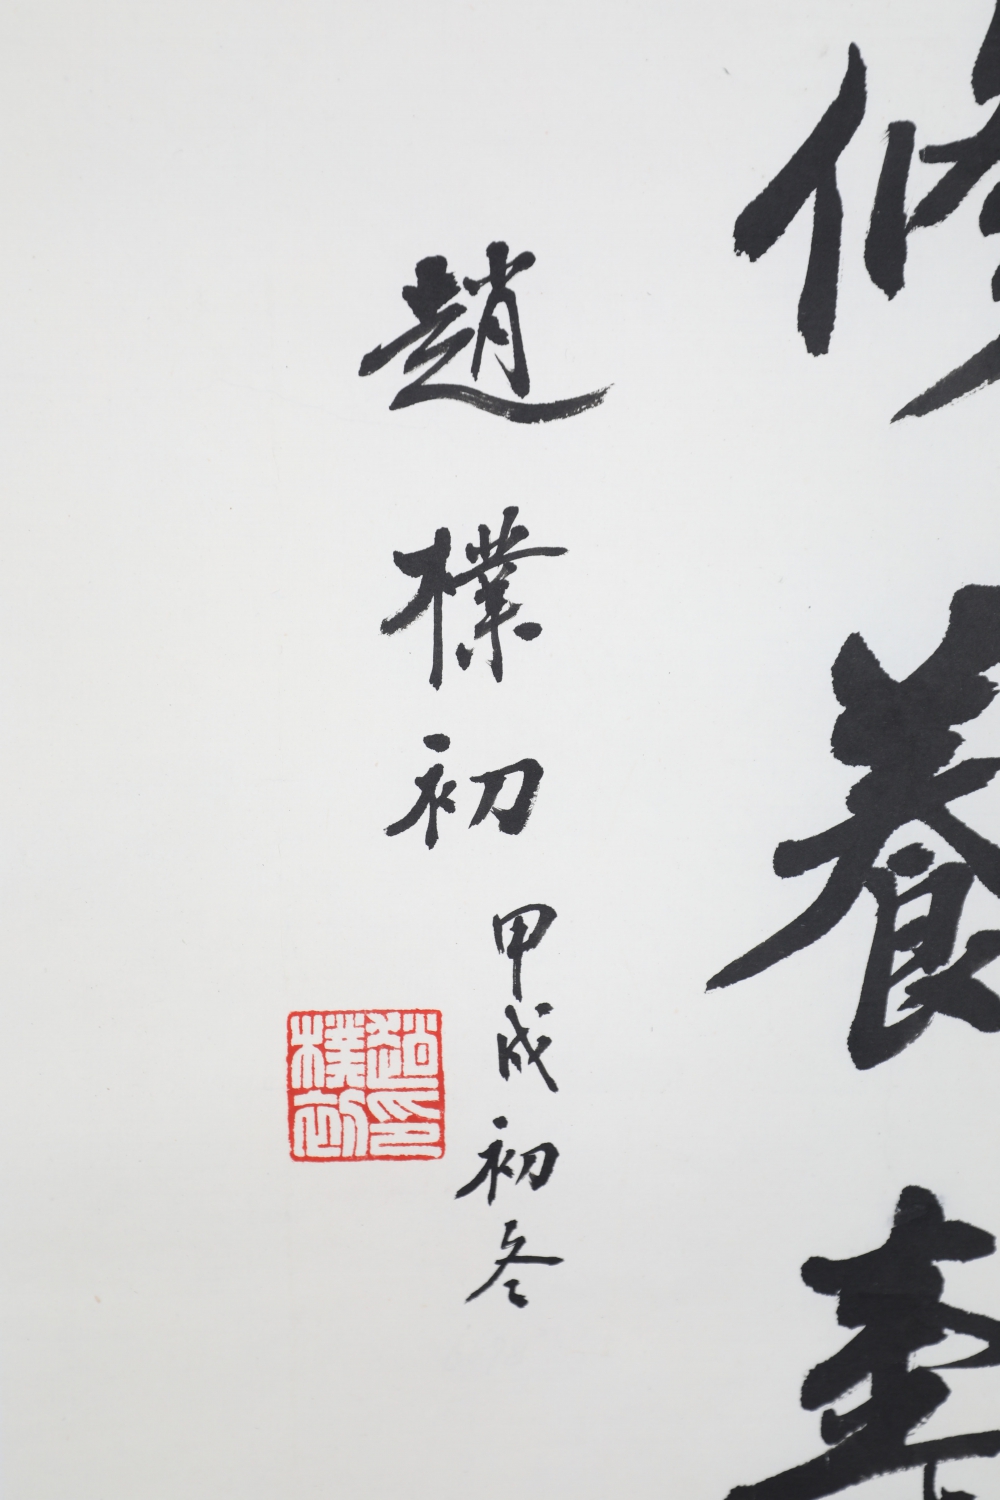 修養
趙樸初
甲戌初冬
趙印
樸初